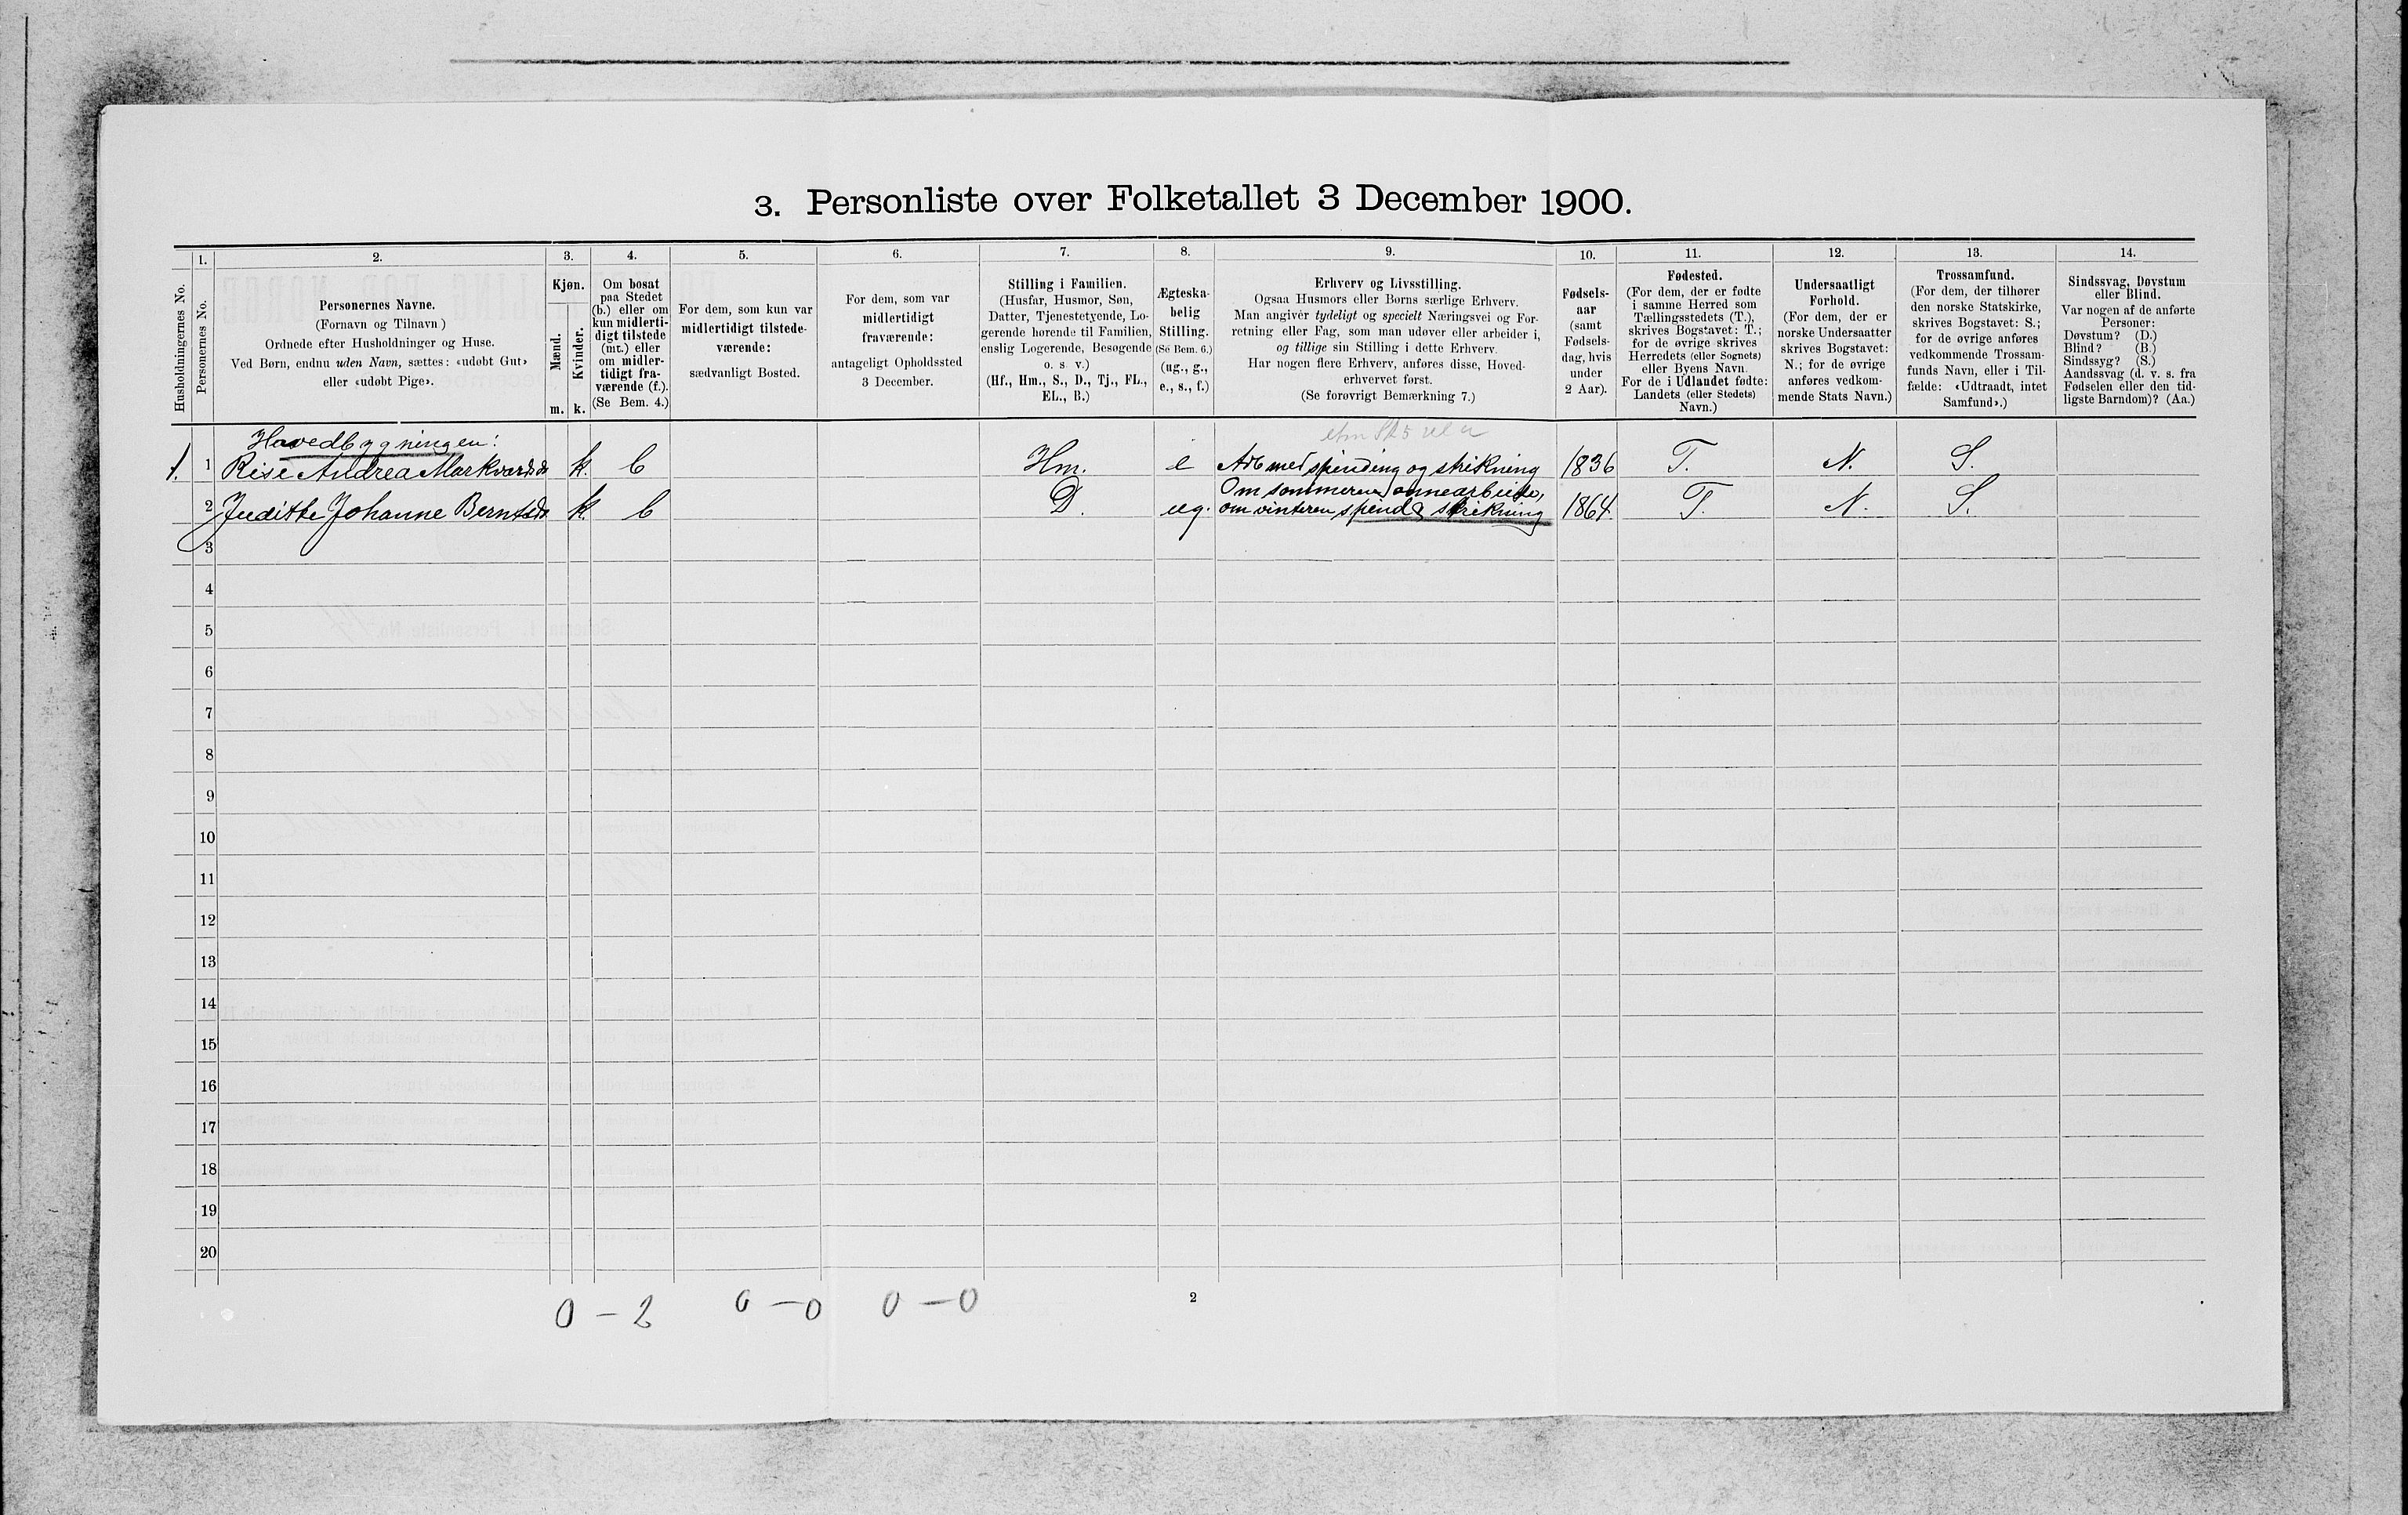 3. Personliste over Folketallet 3 December 1900.
1. 2. 3. 4. 5. 6. 7. 8. 9. 10. 11. 12. 13. 14.
Husholdningernes No.
Personernes No.
Personernes Navne.
(Fornavn og Tilnavn)
Ordnede efter Husholdninger og Huse.
Ved Børn, endnu uden Navn, sættes: «udøbt Gut»
eller «udøbt Pige».
Kjøn.
Mænd.
Kvinder.
m. k.
Om bosat
paa Stedet
(b.) eller om
kun midlerti-
digt tilstede
(mt.) eller
om midler-
tidigt fra-
værende (f.).
(Se Bem. 4.)
For dem, som kun var
midlertidigt tilstede-
værende:
sædvanligt Bosted.
For dem, som var
midlertidigt
fraværende:
antageligt Opholdssted
3 December.
Stilling i Familien.
(Husfar, Husmor, Søn,
Datter, Tjenestetyende, Lo-
gerende hørende til Familien,
enslig Logerende, Besøgende
o. s. v.)
(Hf., Hm., S., D., Tj., FL.,
EL., B.)
Ægteska-
belig
Stilling.
(Se Bem. 6.)
(ug., g.,
e., s., f.)
Erhverv og Livsstilling.
Ogsaa Husmors eller Børns særlige Erhverv.
Man angiver tydeligt og specielt Næringsvei og For-
retning eller Fag, som man udøver eller arbeider i,
og tillige sin Stilling i dette Erhverv.
Har nogen flere Erhverv, anføres disse, Hoved-
erhvervet først.
(Se forøvrigt Bemærkning 7.)
Fødsels-
aar
(samt
Fødsels-
dag, hvis
under
2 Aar).
Fødested.
(For dem, der er fødte
i samme Herred som
Tællingsstedets (T.),
skrives Bogstavet: T.;
for de øvrige skrives
Herredets (eller Sognets)
eller Byens Navn.
For de i Udlandet fødte:
Landets (eller Stedets)
Navn.)
Undersaatligt
Forhold.
(For dem, der er
norske Undersaatter
skrives Bogstavet:
N.; for de øvrige
anføres vedkom-
mende Stats Navn.)
Trossamfund.
(For dem, der tilhører
den norske Statskirke,
skrives Bogstavet: S.;
for de øvrige anføres
vedkommende Trossam-
funds Navn, eller i Til-
fælde: «Udtraadt, intet
Samfund».)
Sindssvag, Døvstum
eller Blind.
Var nogen af de anførte
Personer:
Døvstum? (D.)
Blind? (B.)
Sindssyg? (S.)
Aandssvag (d. v. s. fra
Fødselen eller den tid-
ligste Barndom)? (Aa.)
Hovedbygningen:
1. 1 Rise Andrea Markvardsdr k. b Hm. e Arb med spinding og strikning 1836 T. N. S.
Om sommeren onnearbeide,
2 Juditte Johanne Berntsdr k. b D. ug. om vinteren spind & strikning 1864 T. N. S.
3
4
5
6
7
8
9
10
11
12
13
14
15
16
17
18
19
20
0 – 2 0 – 0 0 – 0
2